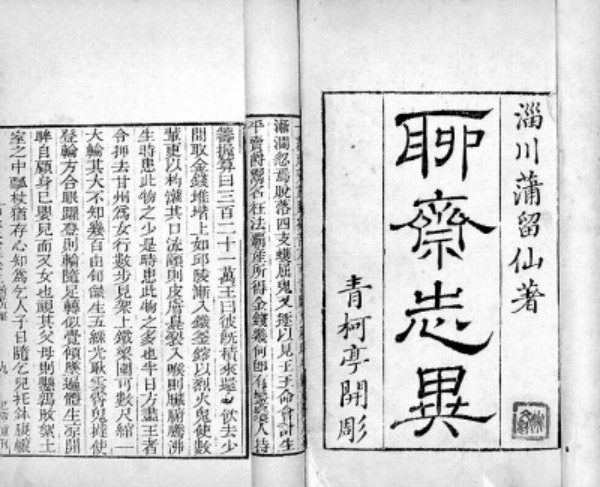 淄川蒲留仙著
聊齋志異
青柯亭開彫
忽焉脫落四支蠖屈鬼又逐以見王王命會計生
平賣爵鬻名枉法霸產所得金錢幾何即有人持
籌握算曰三百二十一萬王曰彼既積來還飲去少
間取金錢堆堦上如邱陵漸入鐵釜鎔以烈火鬼使數
輩更以杓灌其口流頤則皮膚臭裂入喉則臟腑騰沸
生時患此物之少是時患此物之多也半日方盡王者
令押去甘州為女行數步見架上鐵梁圍可數尺綰一
火輪其大不知幾百由旬燄生五綵光耿雲霄鬼撻使
登輪方合眼躍登則輪隨足轉似覺傾墜遍體生凉開
眸自顧身已嬰兒而又女也視其父母則懸鶉敗絮土
室之中瓢杖猶存心知為乞人子日隨乞兒托鉢腹轆